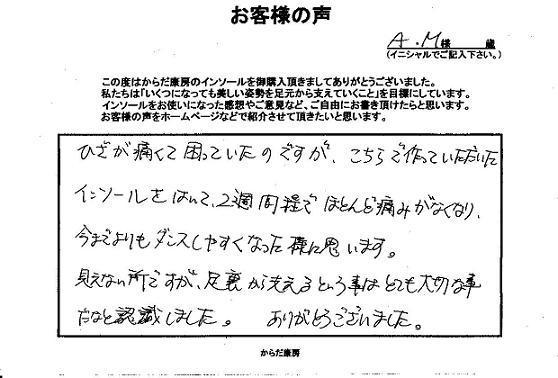 お客様の声
A.M様 歳
(イニシャルでご記入下さい。)
この度はからだ康房のインソールを御購入頂きましてありがとうございました。
私たちは「いくつになっても美しい姿勢を足元から支えていくこと」を目標にしています。
インソールをお使いになった感想やご意見など、ご自由にお書き頂けたらと思います。
お客様の声をホームページなどで紹介させて頂きたいと思います。
ひざが痛くて困っていたのですが、こちらで作っていただいた
インソールをはいて、2週間程でほとんど痛みがなくなり、
今までよりもダンスしやすくなった様に思います。
見えない所ですが、足裏から支えるという事はとても大切な事
だなと認識しました。 ありがとうございました。
からだ康房